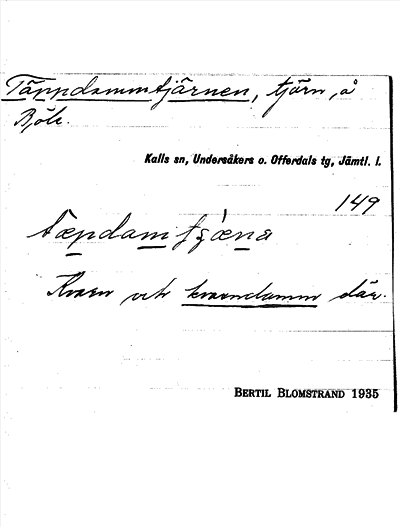 Täppdammtjärnen, tjärn, å
Böle.
Kalls sn, Undersåkers o. Offerdals tg, Jämtl. l.
149
tæpdamtʂæ̀na
Kvarn och kvarndamm där.
BERTIL BLOMSTRAND 1935